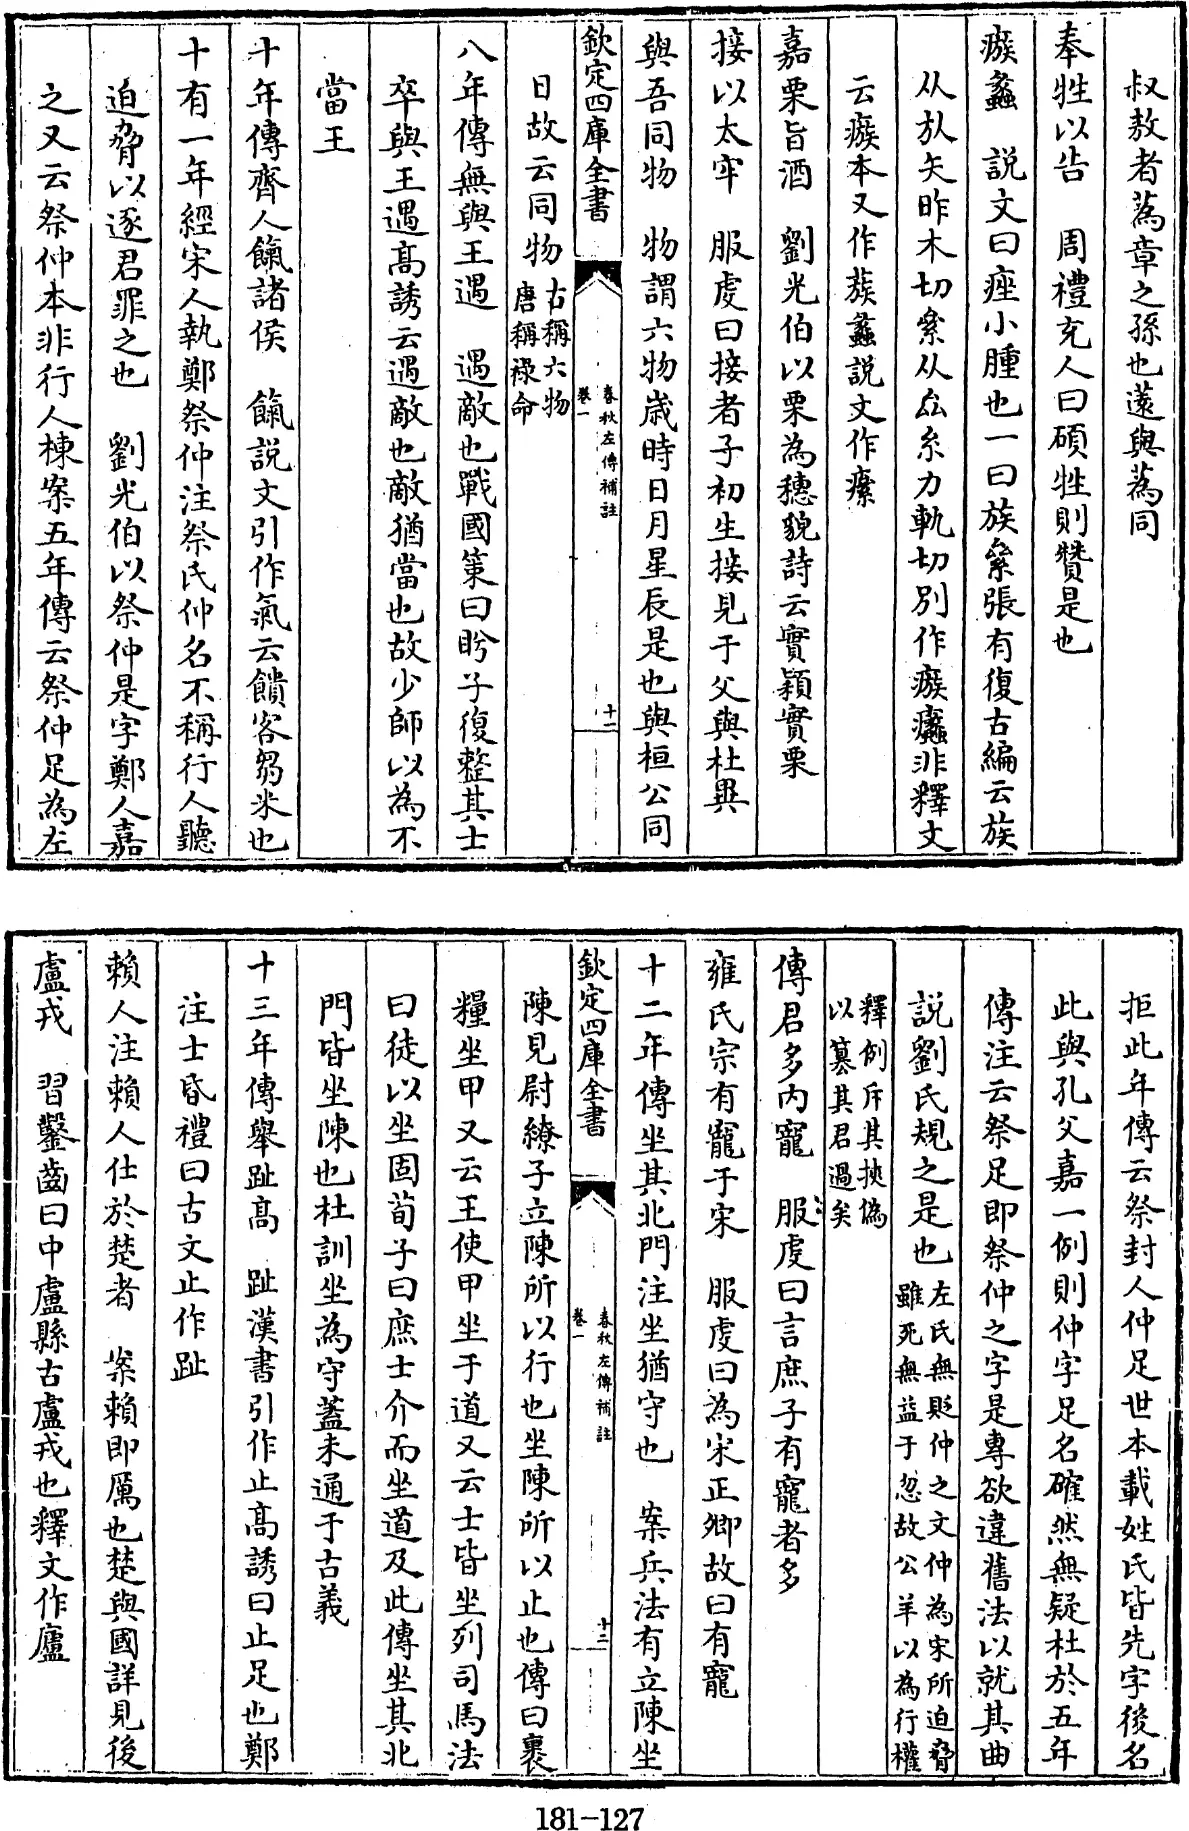 叔敖者蒍章之孫也薳與蒍同
奉牲以告　周禮充人曰碩牲則贊是也
瘯蠡　說文曰痤小腫也一曰族絫張有復古編云族
从㫃矢昨木切絫从厽糸力軌切別作瘯蠡非釋文
云瘯本又作蔟蠡説文作瘰
嘉栗旨酒　劉光伯以栗為穗貌詩云實穎實栗
接以太牢　服虔曰接者子初生接見于父與杜異
與吾同物　物謂六物歳時日月星辰是也與桓公同
欽定四庫全書
春秋左傳補註
卷一
十二
日故云同物古稱六物
唐稱祿命
八年傳無與王遇　遇敵也戰國策曰盻子復整其士
卒與王遇高誘云遇敵也敵猶當也故少師以為不
當王
十年傳齊人餼諸侯　餼説文引作氣云饋客芻米也
十有一年經宋人執鄭祭仲注祭氏仲名不稱行人聽
迫脅以逐君罪之也　劉光伯以祭仲是字鄭人嘉
之又云祭仲本非行人棟案五年傳云祭仲足為左
拒此年傳云祭封人仲足世本載姓氏皆先字後名
此與孔父嘉一例則仲字足名確然無疑杜於五年
傳注云祭足即祭仲之字是專欲違舊法以就其曲
説劉氏規之是也左氏無貶仲之文仲為宋所迫脅
雖死無益于忽故公羊以為行權
釋例斥其挾偽
以簒其君過矣
傳君多内寵　服虔曰言庶子有寵者多
雍氏宗有寵于宋　服虔曰為宋正卿故曰有寵
十二年傳坐其北門注坐猶守也　案兵法有立陳坐
欽定四庫全書
春秋左傳補註
卷一
十三
陳見尉繚子立陳所以行也坐陳所以止也傳曰裹
糧坐甲又云王使甲坐于道又云士皆坐列司馬法
曰徒以坐固荀子曰庶士介而坐道及此傳坐其北
門皆坐陳也杜訓坐為守蓋未通于古義
十三年傳舉趾高　趾漢書引作止高誘曰止足也鄭
注士昏禮曰古文止作趾
賴人注賴人仕於楚者　案賴即厲也楚與國詳見後
盧戎　習鑿齒曰中盧縣古盧戎也釋文作廬
181-127